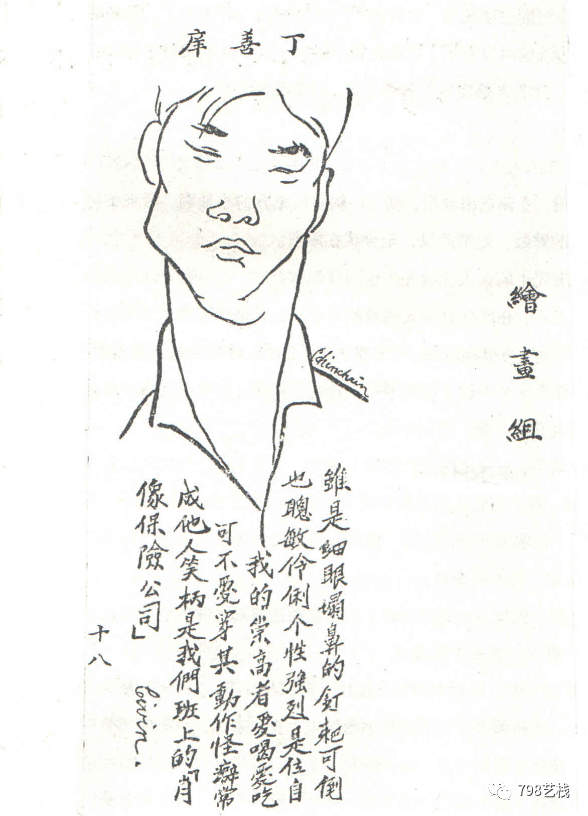 丁善庠
繪畫組
雖是細眼塌鼻的釘耙可倒
也聰敏伶俐个性強烈是位自
我的崇高者愛喝愛吃
可不愛穿其動作怪癖常
成他人笑柄是我們班上的「肖
像保險公司」
十八
798艺栈